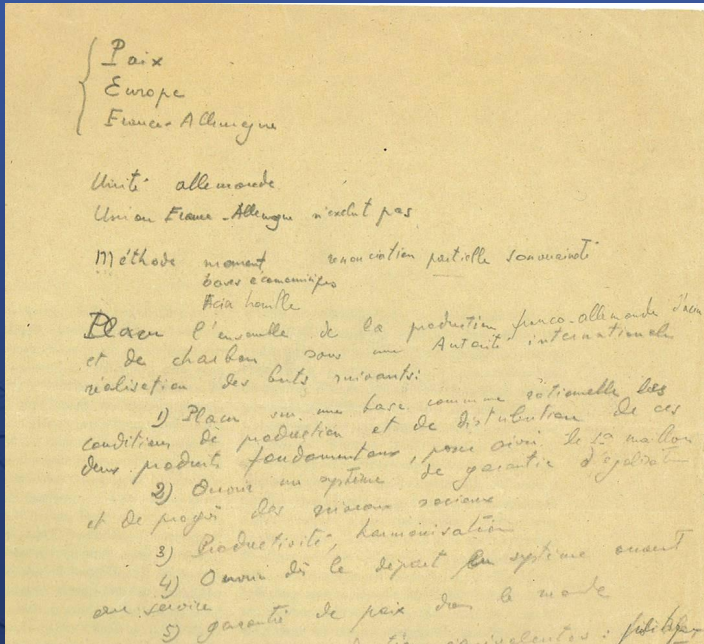 Paix
Europe
France-Allemagne
Unité allemande
Union France-Allemagne n'exclut pas
Méthode moment renonciation partielle souveraineté
bases économiques
Acier houille
Placer l'ensemble de la production franco-allemande d'acier
et de charbon sous une Autorité internationale
réalisation des buts suivants:
1) Placer sur une base commune rationnelle les
conditions de production et de distribution de ces
deux produits fondamentaux, le 1er maillon
2) Ouvrir un système de garantie d'égalisation
et de progrès des niveaux sociaux
3) Productivité, harmonisation
4) Ouvrir dès le départ un système ouvert
au service
5) garantie de paix dans le monde